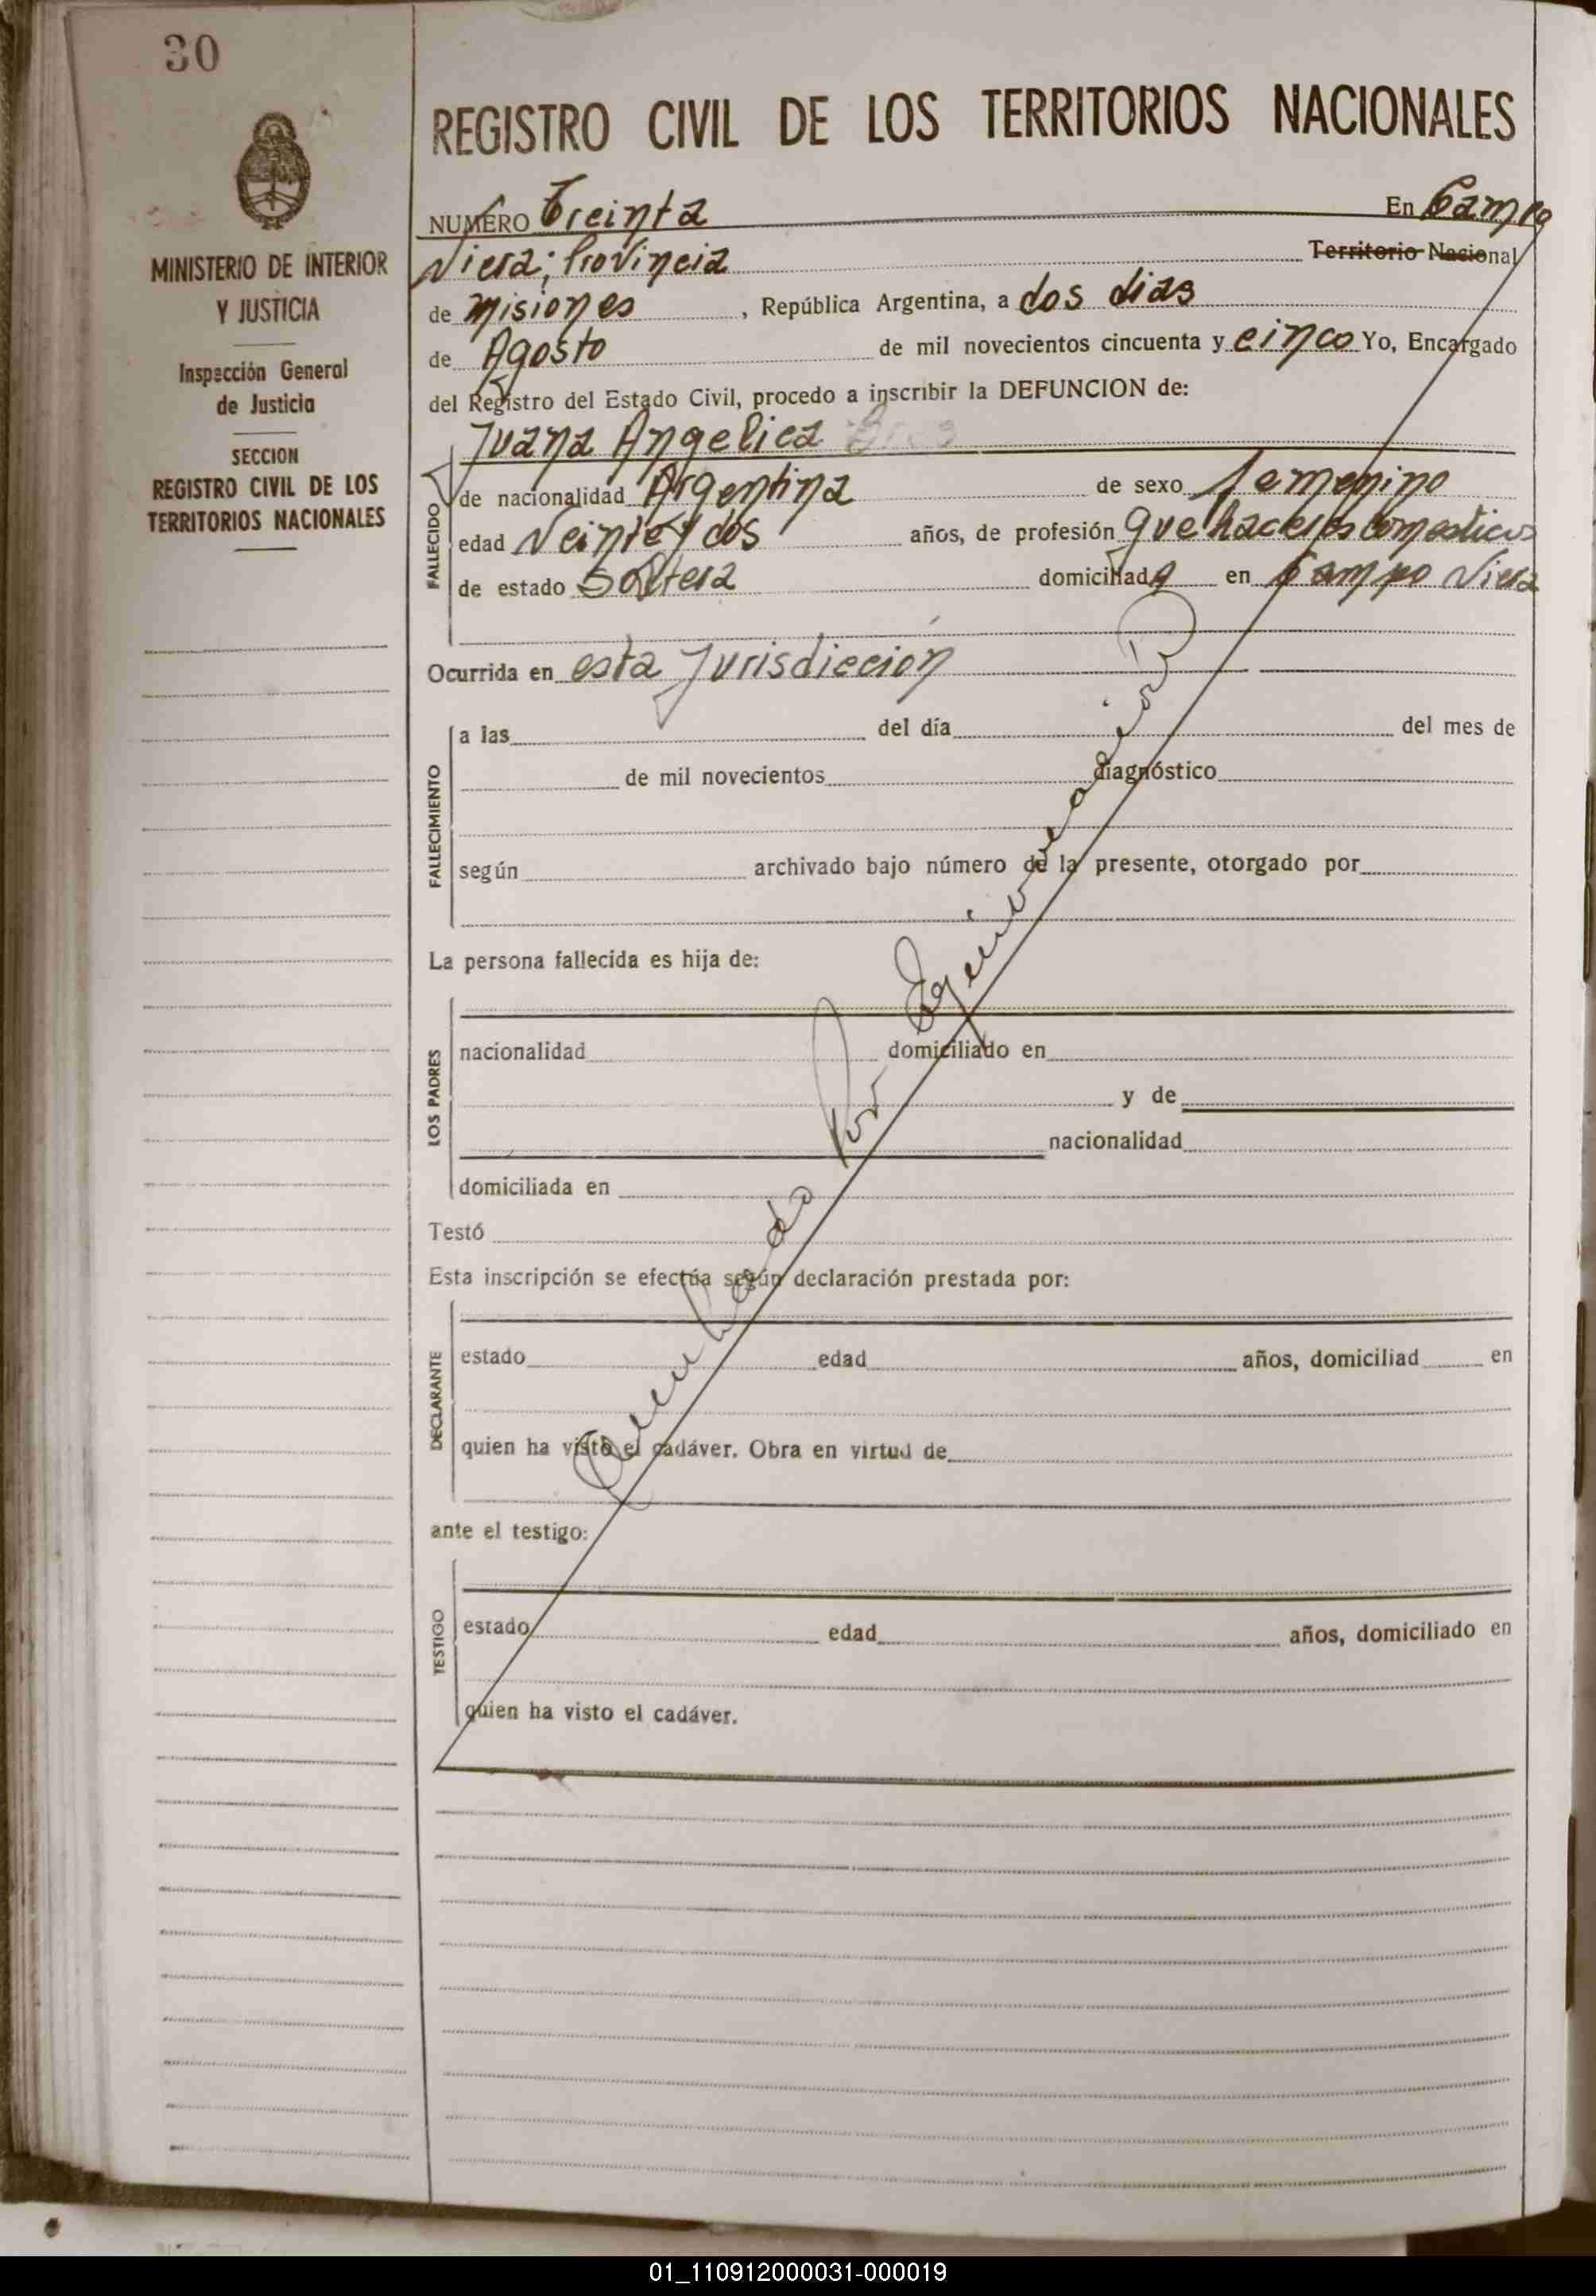 30
MINISTERIO DE INTERIOR
Y JUSTICIA
Inspección General
de Justicia
SECCION
REGISTRO CIVIL DE LOS
TERRITORIOS NACIONALES
REGISTRO CIVIL DE LOS TERRITORIOS NACIONALES
NUMERO Treinta En Campo
Viera; Provincia Territorio Nacional
de Misiones, República Argentina, a dos dias
de Agosto de mil novecientos cincuenta y cinco Yo, Encargado
del Registro del Estado Civil, procedo a inscribir la DEFUNCION de:
Juana Angelica
FALLECIDO
de nacionalidad Argentina de sexo femenino
edad Veinte y dos años, de profesión que haceres domesticos
de estado Soltera domiciliada en Campo Viera
Ocurrida en esta Jurisdiccion
FALLECIMIENTO
a las del día del mes de
de mil novecientos diagnóstico
según archivado bajo número de la presente, otorgado por
La persona fallecida es hija de:
LOS PADRES
nacionalidad domiciliado en
y de
nacionalidad
domiciliada en
Testó
Esta inscripción se efectúa según declaración prestada por:
DECLARANTE
estado edad años, domiciliad en
quien ha visto el cadáver. Obra en virtud de
ante el testigo:
TESTIGO
estado edad años, domiciliado en
quien ha visto el cadáver.
Anulado Por Equivocación
01_110912000031-000019